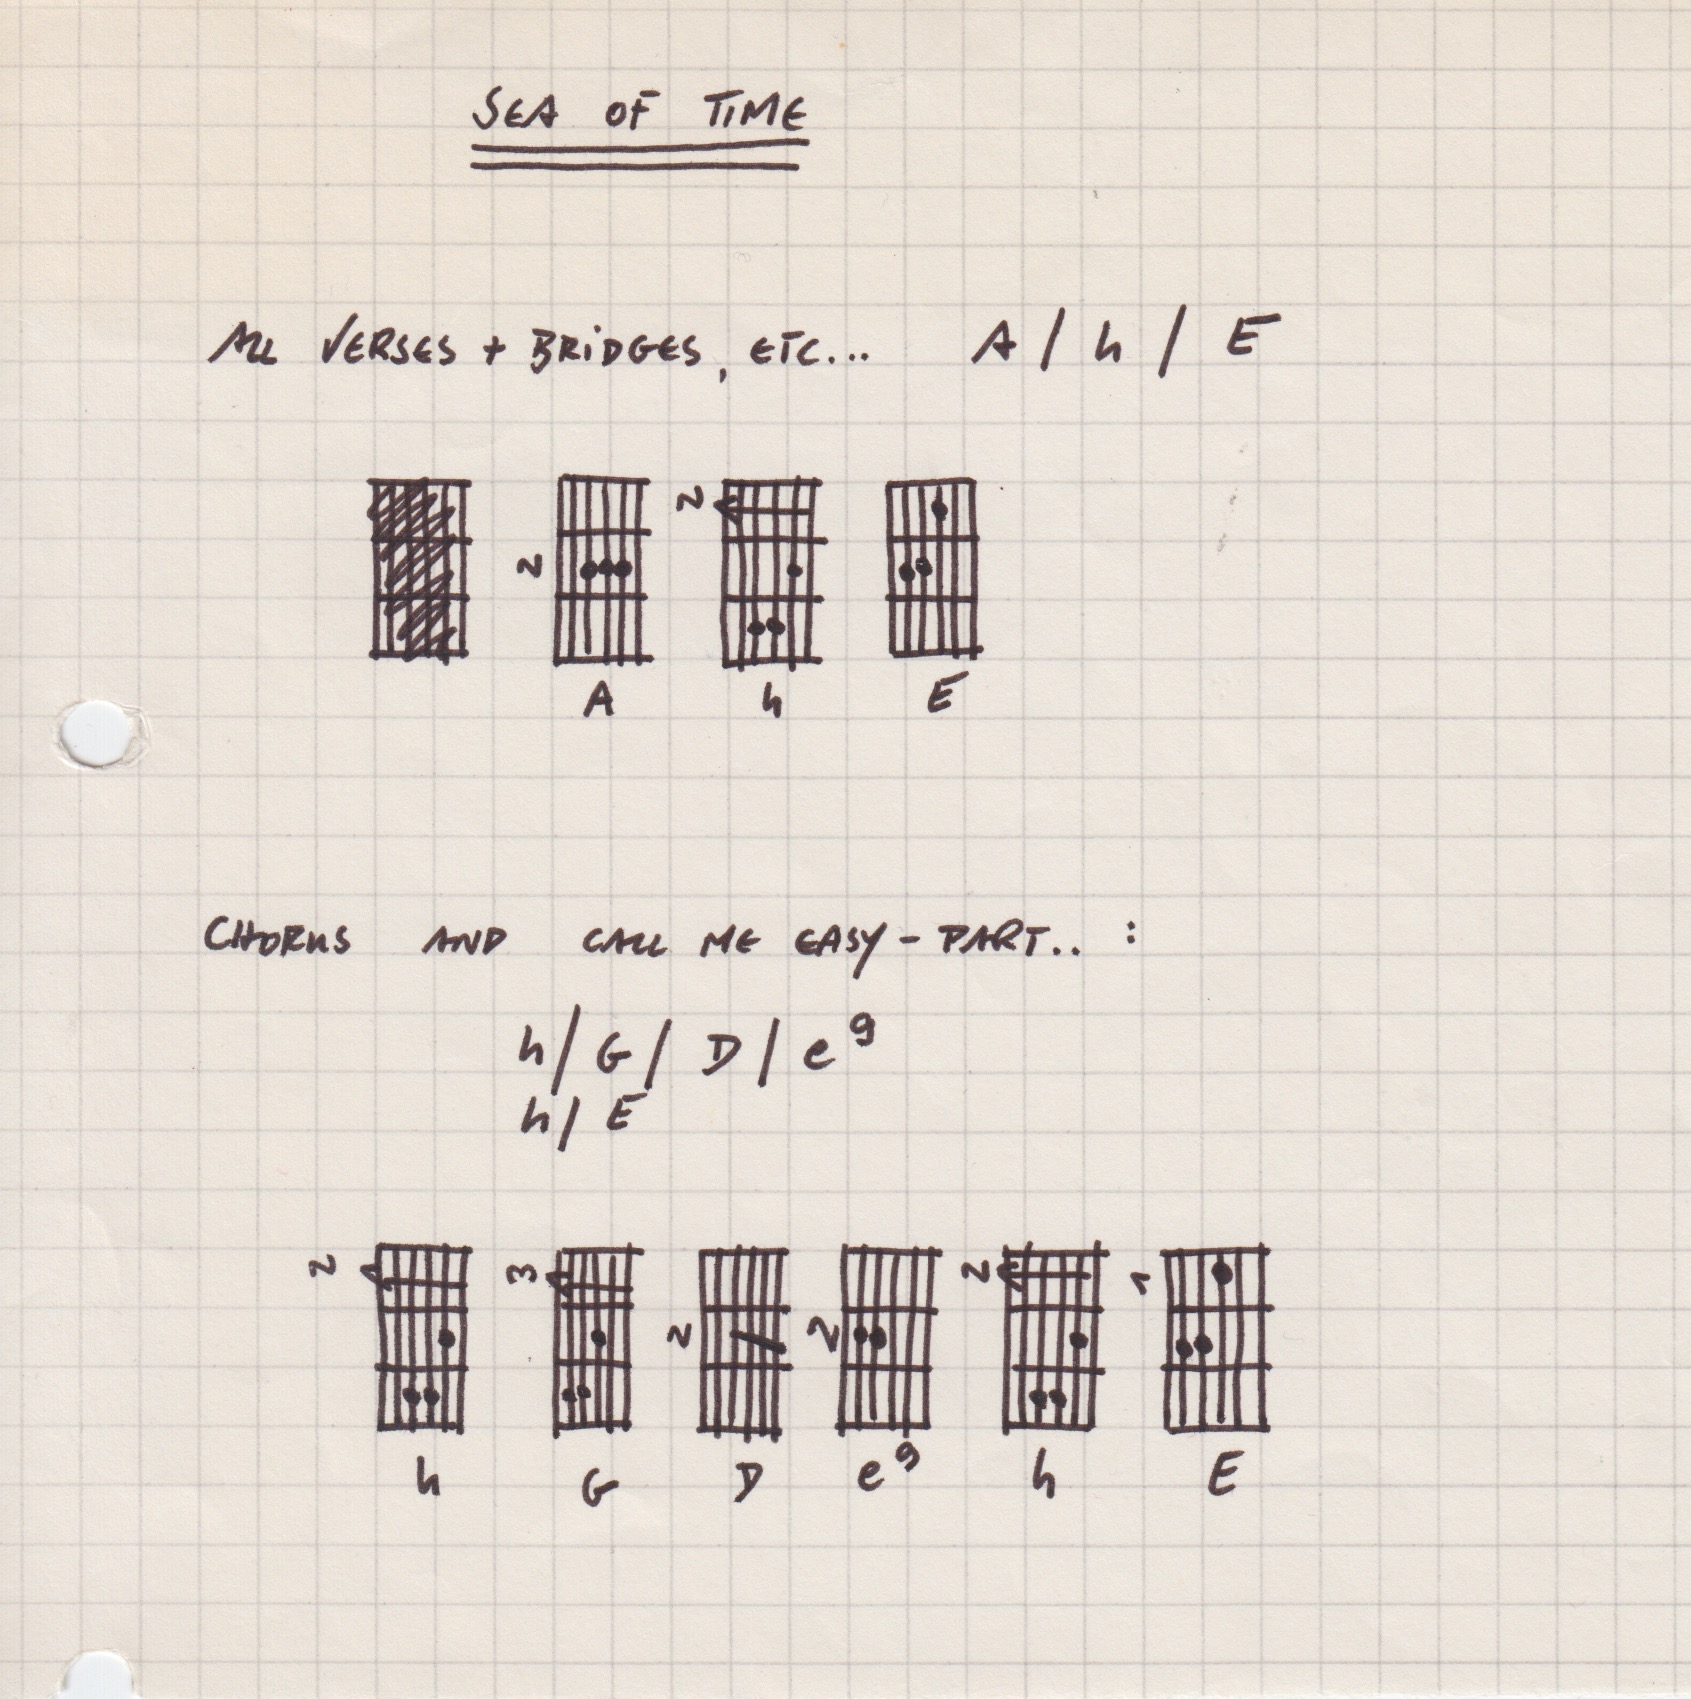 SEA OF TIME
ALL VERSES + BRIDGES, ETC... A / h / E
2 2
A h E
CHORUS AND CALL ME EASY - PART.. :
h / G / D / e9
h / E
2 3 2 2 2 1
h G D e9 h E